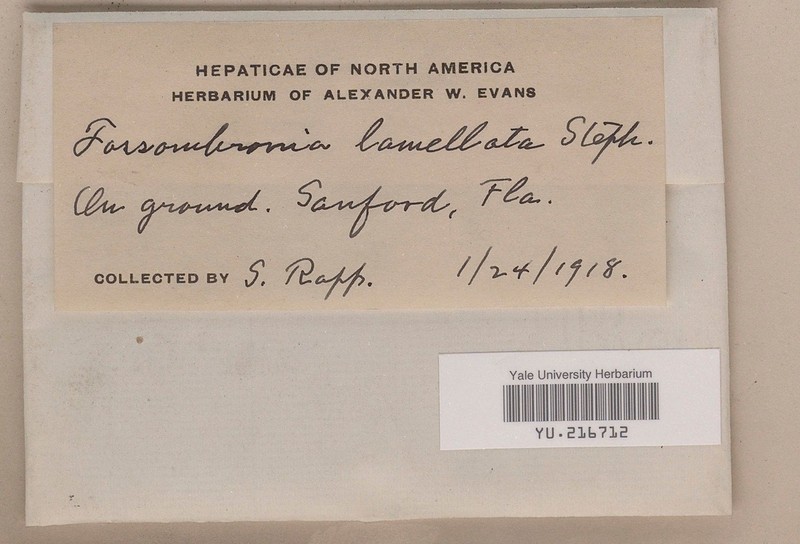 HEPATICAE OF NORTH AMERICA
HERBARIUM OF ALEXANDER W. EVANS
Fossombronia lamellata Steph.
On ground. Sanford, Fla.
COLLECTED BY S. Rapp. 1/24/1918.
Yale University Herbarium
YU.216712